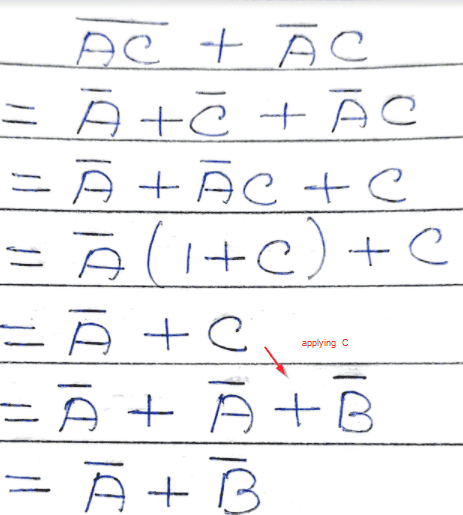 A̅C̅ + A̅C
= A̅ + C̅ + A̅C
= A̅ + A̅C + C
= A̅(1+C) + C
= A̅ + C
applying C
= A̅ + A̅ + B̅
= A̅ + B̅